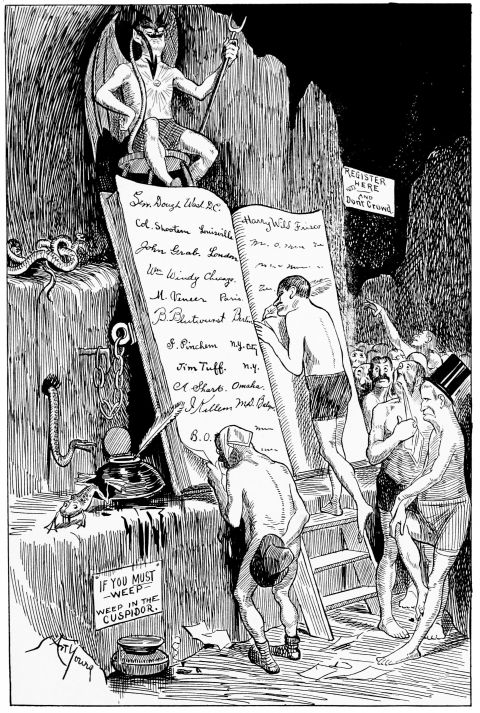 REGISTER
HERE
AND
Don't Crowd
Sen. Dough Wash D.C.
Col. Shootem Louisville
John Grab. London
Wm Windy Chicago.
M. Veneer Paris.
B. Blutwurst Berlin
S. Pinchem N.Y. City
Jim Tuff. N.Y.
A Shark. Omaha.
I Killem M.D.
B.O.
Harry Wild Frisco
IF YOU MUST
WEEP
WEEP IN THE
CUSPIDOR.
Art Young